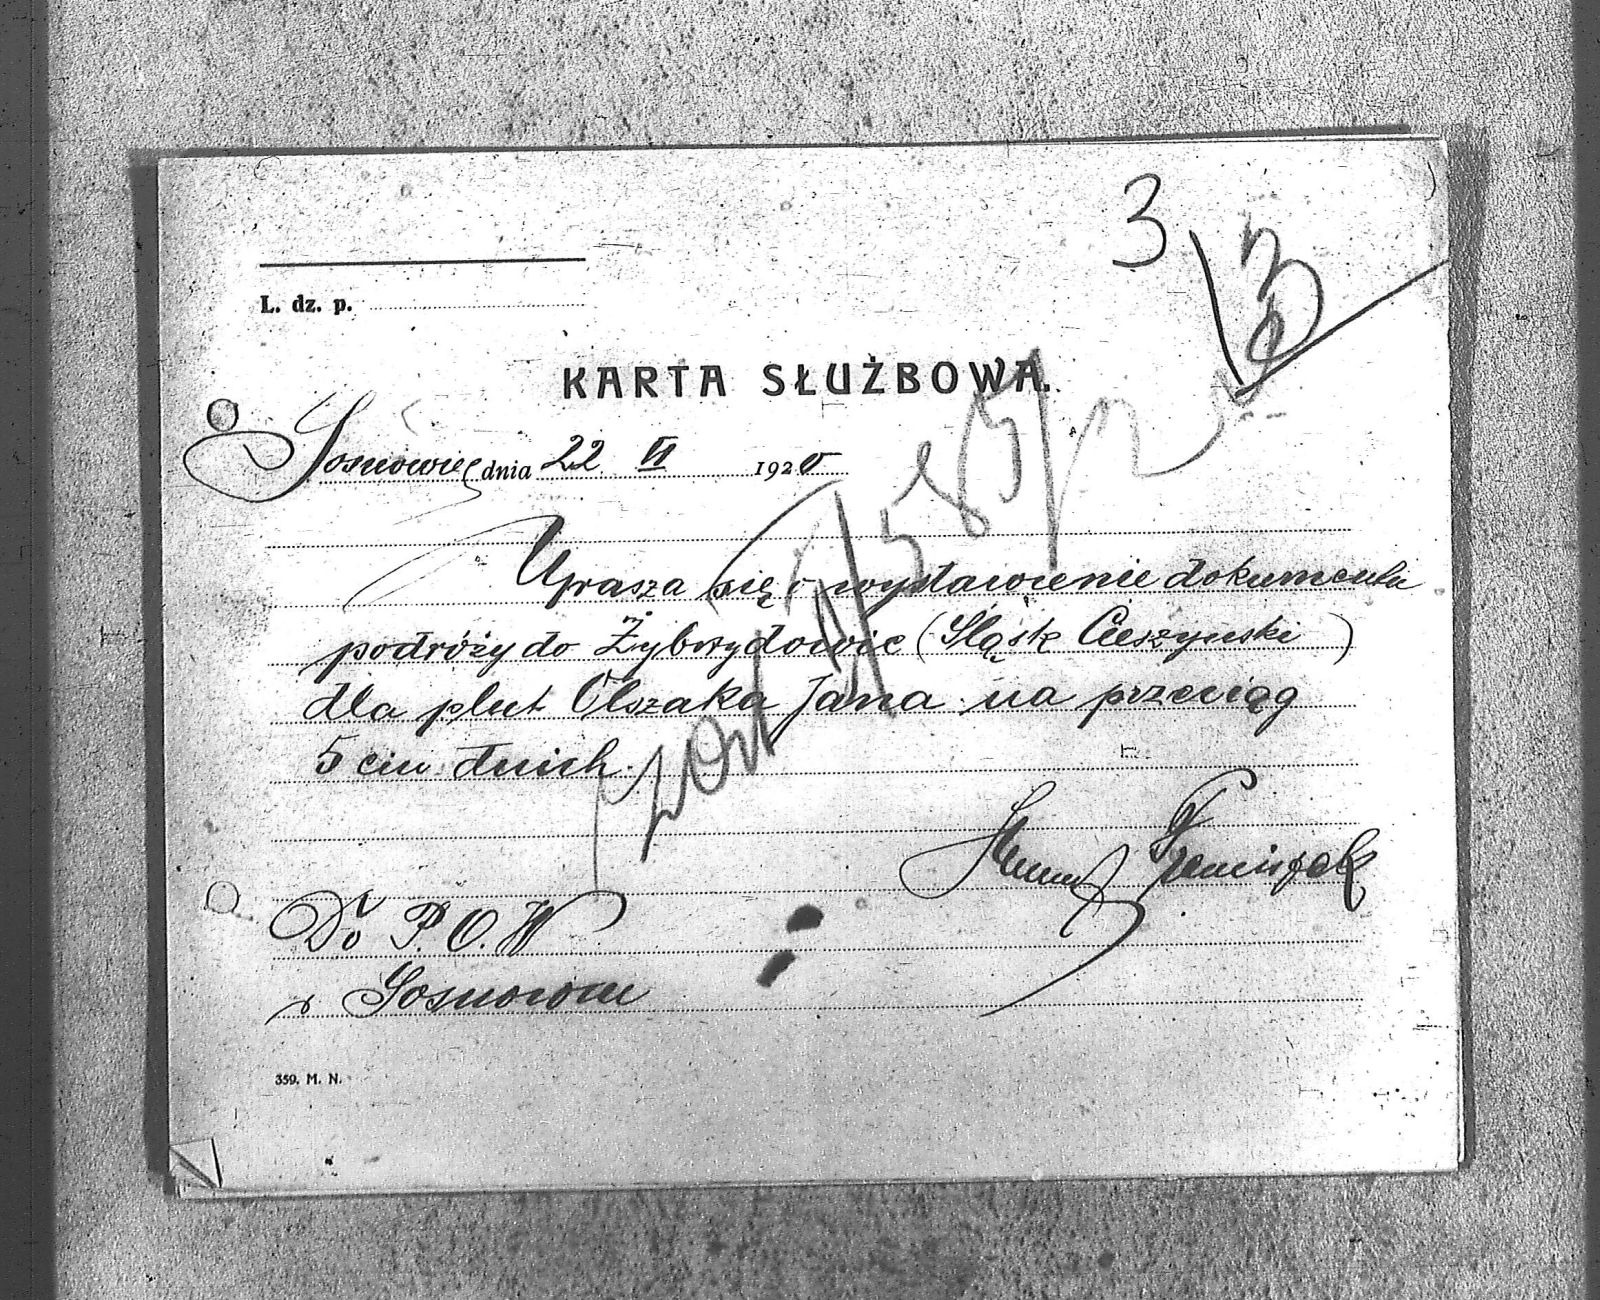 3
L. dz. p.
KARTA SŁUŻBOWA.
Sosnowiec dnia 22 VI 1920
Uprasza się o wystawienie dokumentu
podróży do Żybrzydowic (Śląsk Cieszyński)
dla plut Olszaka Jana na przeciąg
5 ciu dnich.
Franciszek
Do P. O. W
w Sosnowcu
359. M. N.